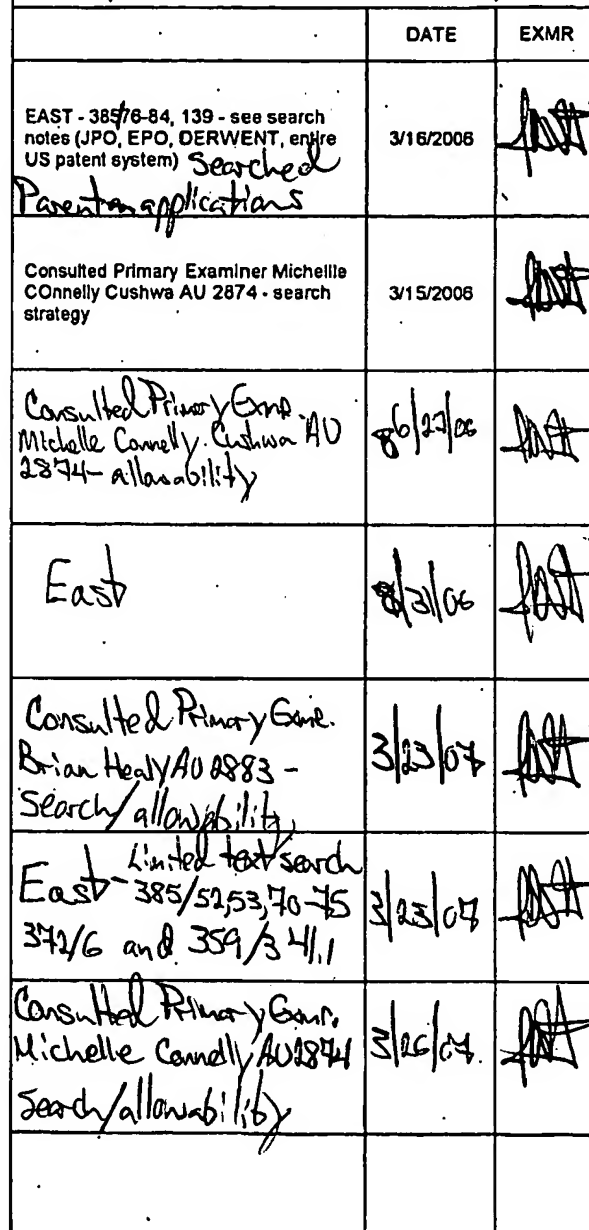 DATE EXMR
EAST - 38576-84, 139 - see search
notes (JPO, EPO, DERWENT, entire
US patent system) Searched
Parent applications
3/16/2006
Consulted Primary Examiner Michellle
COnnelly Cushwa AU 2874 - search
strategy
3/15/2006
Consulted Primary Exmr.
Michelle Connelly Cushwa AU
2874 - allowability
6/27/06
East
8/31/06
Consulted Primary Exmr.
Brian Healy AU 2883 -
Search/allowability
3/23/07
East - Limited text search
385/52,53,70-75
372/6 and 359/341.1
3/23/07
Consulted Primary Exmr.
Michelle Connelly AU2874
Search/allowability
3/26/07